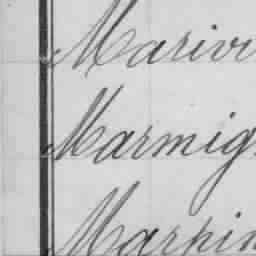 Marivi
Marmig
Marpin